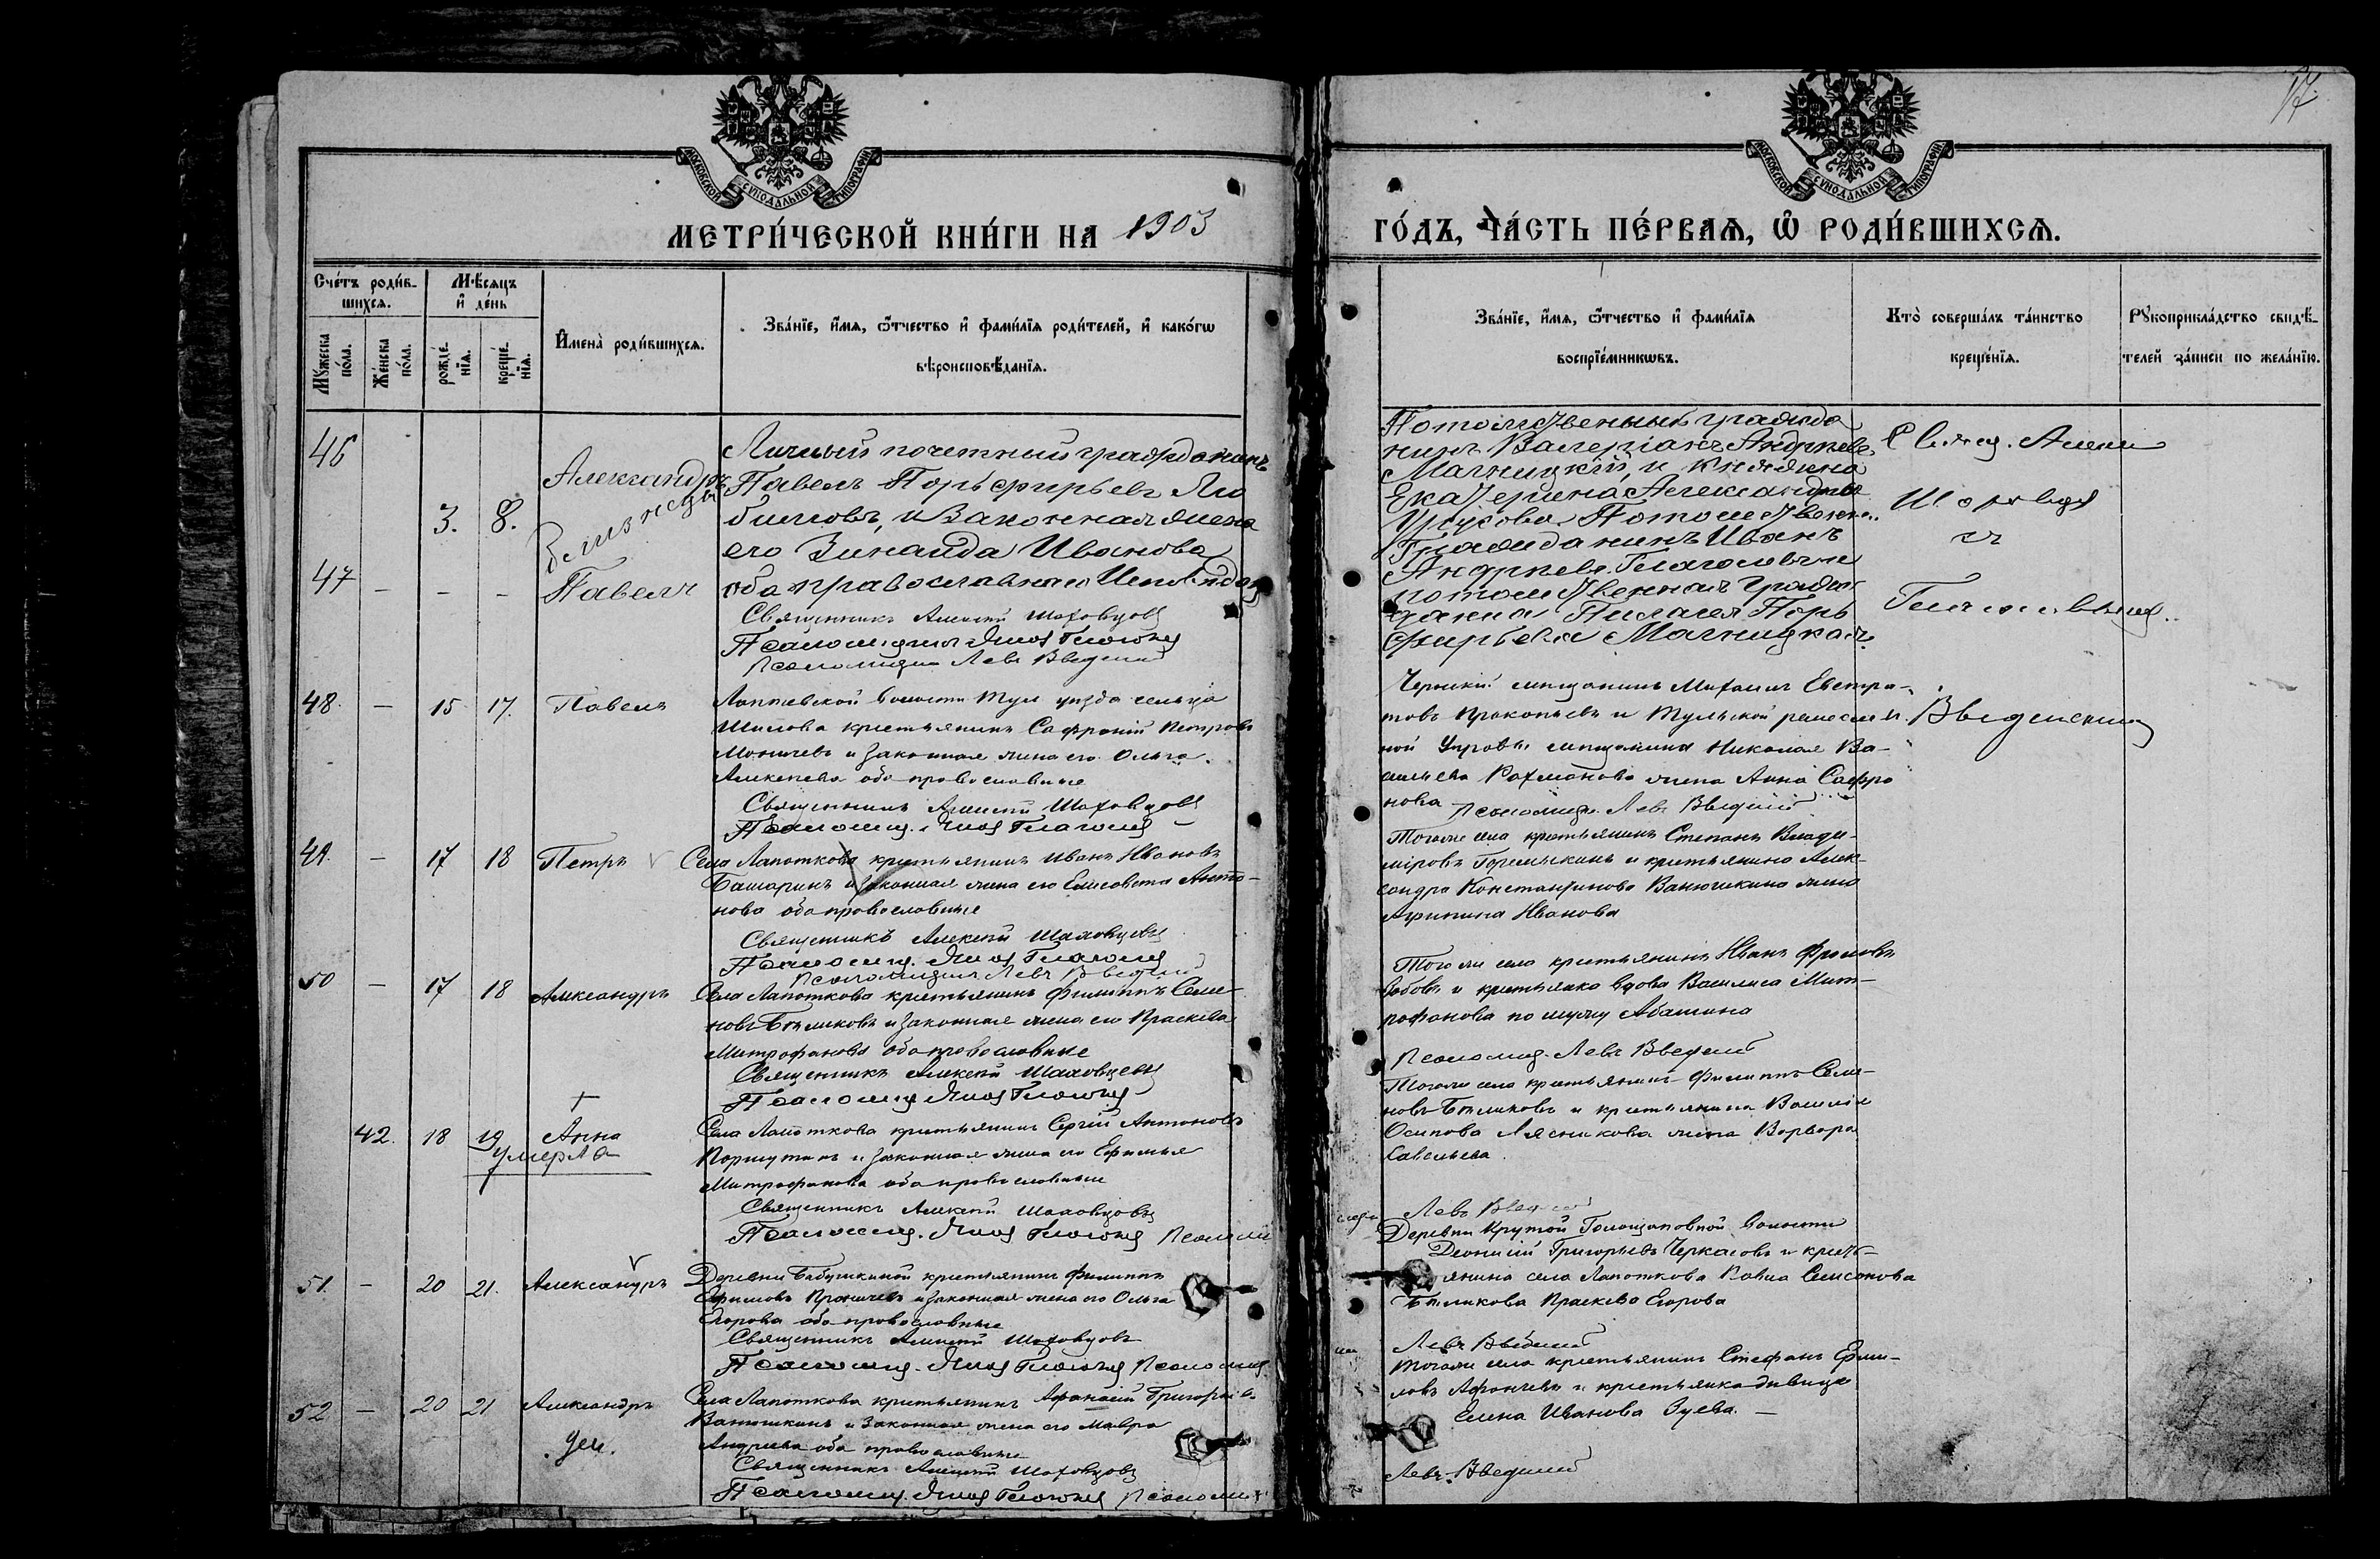 17
МОСКОВСКОЙ СѴНОДАЛЬНОЙ ТИПОГРАФІИ
МОСКОВСКОЙ СѴНОДАЛЬНОЙ ТИПОГРАФІИ
МЕТРИ́ЧЕСКОЙ КНИ́ГИ НА 1903
ГО́ДЪ, ЧА́СТЬ ПЕ́РВАѦ, Ѡ҆ РОДИ́ВШИХСѦ.
Сче́тъ роди́в-
шихсѧ.
Мꙋ́жеска
по́ла.
Же́нска
по́ла.
Мѣ́сѧцъ
и҆ де́нь
рожде́-
нїѧ.
креще́-
нїѧ.
И҆мена̀ роди́вшихсѧ.
Зва́нїе, и҆́мѧ, ѻ҆́тчество и҆ фами́лїѧ роди́телей, и҆ како́гѡ
вѣроисповѣ́данїѧ.
Зва́нїе, и҆́мѧ, ѻ҆́тчество и҆ фами́лїѧ
воспрїе́мникѡвъ.
Кто̀ соверша́лъ та́инство
креще́нїѧ.
Рꙋкоприкла́дство свидѣ́-
телей за́писи по жела́нїю.
46
3. 8.
Александръ
близнецы
47 – – – Павелъ
Личный почетный гражданинъ
Павелъ Порьфирьевъ Лю
бимовъ, и Законная жена
его Зинаида Иванова
оба православнаго Исповѣдан
Священникъ Алексѣй Шаховцовъ
Псаломщикъ Глаголевъ
Псаломщикъ Левъ Введенскій
Потомственный гражда
нинъ Валеріанъ Андреевъ
Магницкій, и Княжна
Екатерина Александро
Урусова. Потомственн.
Гражданинъ Иванъ
Андреевъ Глаголевъ и
потомственная гражд
данка Пелагея Порь
фирьева Магницкая.
Свящ. Алекс
Шаховцо
съ
Глаголевымъ.
48. – 15 17. Павелъ
Лаптевской волости Тул уѣзда сельца
Шилова крестьянинъ Сафроній Петровъ
Моничевъ и законная жена его Ольга
Алексѣева оба православные
Священникъ Алексѣй Шаховцовъ
Псаломщ. Глаголевъ
Чернскій мѣщанинъ Михаилъ Евстра-
товъ Прокопьевъ и Тульской ремеслен.
ной Управы мѣщанина Николая Ва-
сильева Рахманова жена Анна Сафро
нова Псаломщ. Левъ Введенскій
Введенскій
49. – 17 18 Петръ
Села Лапоткова крестьянинъ Иванъ Ивановъ
Башаринъ и законная жена его Елисавета Анто-
нова оба православные
Священникъ Алексѣй Шаховцевъ
Псаломщ. Глаголевъ
Псаломщикъ Левъ Введенскій
Того же села крестьянинъ Степанъ Влади-
міровъ Горемыкинъ и крестьянина Алек-
сандра Константинова Ванюшкина жена
Агрипина Иванова
50 – 17 18 Александръ
Села Лапоткова крестьянинъ Филиппъ Семе-
новъ Бѣликовъ и законная жена его Праскева
Митрофанова оба православные
Священникъ Алексѣй Шаховцевъ
Псаломщ. Глаголевъ
Того же села крестьянинъ Иванъ Фроловъ
и крестьянка вдова Василиса Мит-
рофанова по мужу Абашина
Псаломщ. Левъ Введенскій
42. 18 19 Анна
умерла
Села Лапоткова крестьянинъ Сергій Антоновъ
и законная жена его Ефимья
Митрофанова оба православные
Священникъ Алексѣй Шаховцовъ
Псаломщ. Глаголевъ Псаломщ
Того же села крестьянинъ Филиппъ Семе-
новъ Бѣликовъ и крестьянина Василія
Осипова Лясникова жена Варвара
Савельева.
Левъ Введенскій
51. – 20 21. Александръ
Деревни Бабушкиной крестьянинъ Филиппъ
Ефимовъ Проничевъ и законная жена его Ольга
Егорова оба православные
Священникъ Алексѣй Шаховцовъ
Псаломщ. Глаголевъ Псаломщ
Деревни Крутой Голощаповой волости
Деонисій Григорьевъ Черкасовъ и кресть-
янина села Лапоткова Семенова
Бѣликова Праскева Егорова
Левъ Введенскій
52 – 20 21 Александръ
Ум.
Села Лапоткова крестьянинъ Афанасій Григорьев
Ванюшкинъ и Законная жена его Мавра
Андреева оба православные
Священникъ Алексѣй Шаховцовъ
Псаломщ. Глаголевъ Псаломщ
Того же села крестьянинъ Стефанъ Ерми-
ловъ Афоничевъ и крестьянка дѣвица
Елена Иванова Зуева. –
Левъ Введенскій